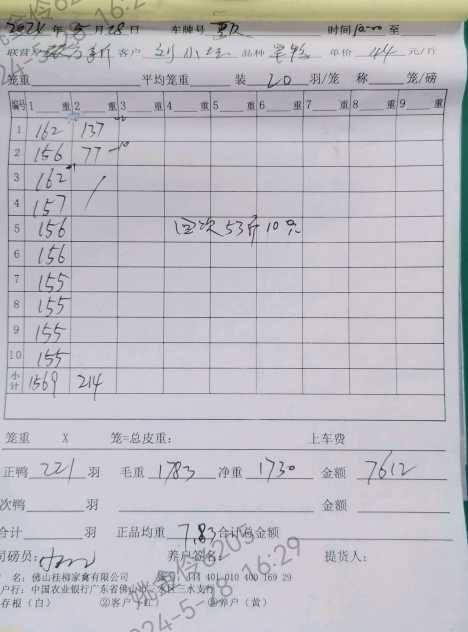 2024 年 5 月 28 日 车牌号 时间 至
客户 刘小 品种 单价 4.4 元/斤
笼重 平均笼重 装 20 羽/笼 称 笼/磅
编号 1 重 2 重 3 重 4 重 5 重 6 重 7 重 8 重 9 重
1 162 137
2 156 77 -10
3 162
4 157 /
5 156 回次53斤10只
6 156
7 155
8 155
9 155
10 155
小计 1569 214
笼重 X 笼=总皮重: 上车费
正鸭 221 羽 毛重 1783 净重 1730 金额 7612
次鸭 羽 金额
合计 羽 正品均重 7.83 合计总金额
司磅员: 养户签名: 提货人:
名: 佛山桂柳家禽有限公司 444 401 010 400 169 29
户行: 中国农业银行广东省佛山 三水支行
存根(白) ②客户(红) ③养户(黄)
2024-5-28 16:29